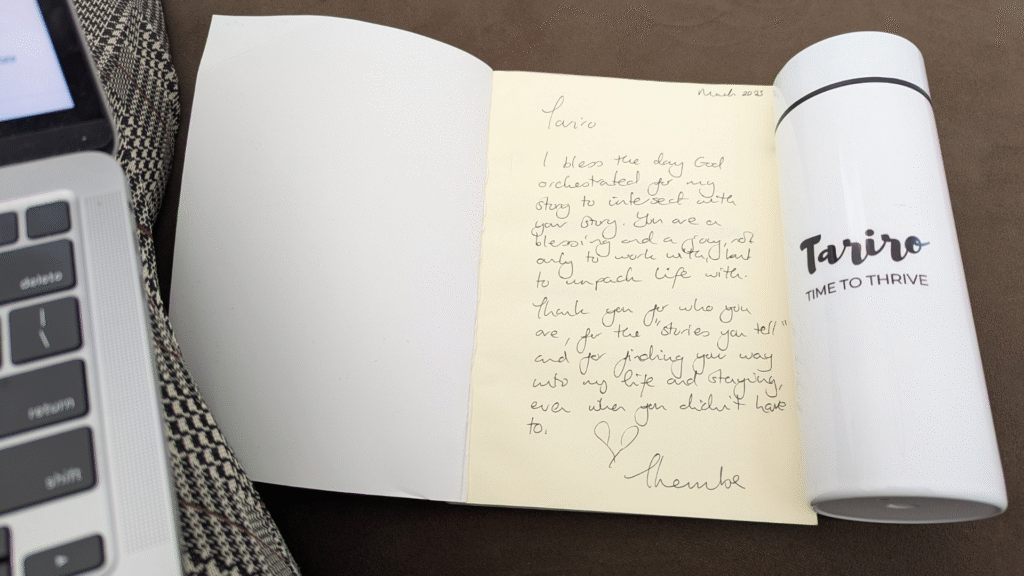 March 2025
Tariro
I bless the day God
orchestrated for my
story to intersect with
your story. You are a
blessing and a joy, not
only to work with, but
to unpack life with.
Thank you for who you
are, for the "stories you tell"
and for finding your way
into my life and staying,
even when you didn't have
to.
Thembe
Tariro
TIME TO THRIVE
delete
return
shift